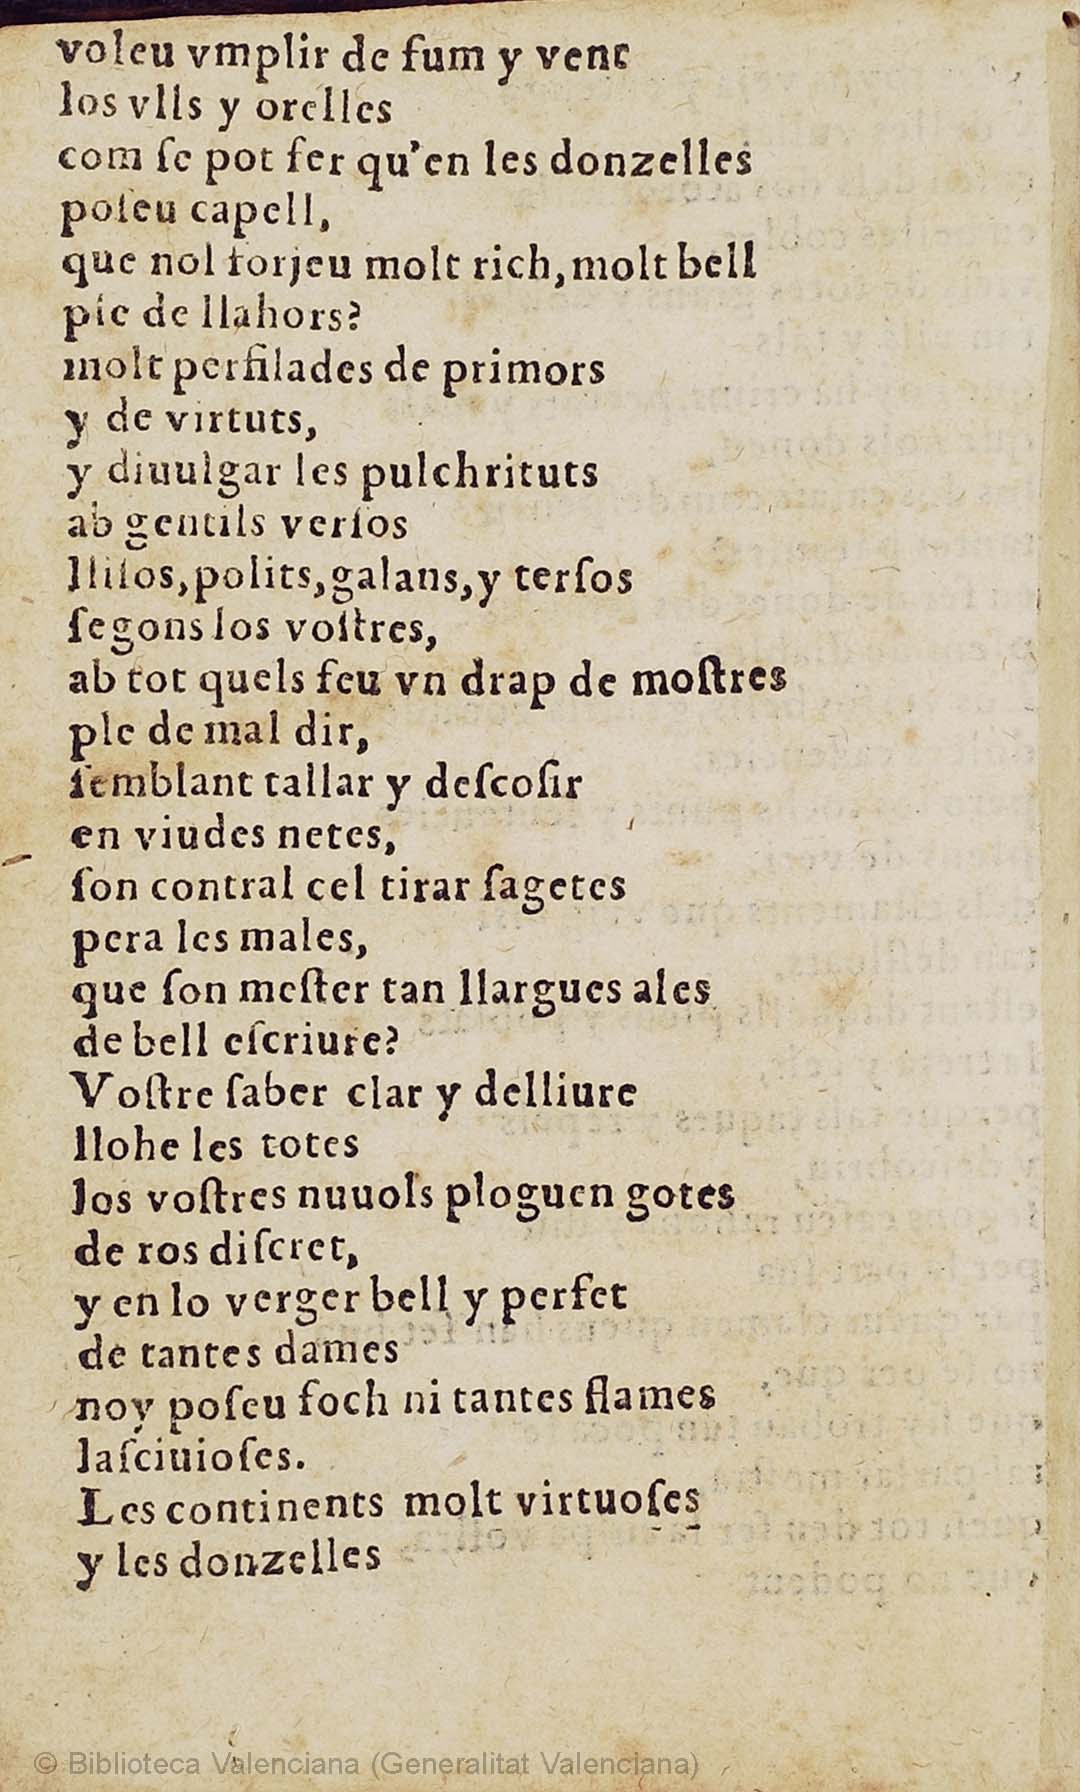 voleu vmplir de fum y vent
los vlls y orelles
com ſe pot fer qu'en les donzelles
poſeu capell,
que nol forjeu molt rich, molt bell
ple de llahors?
molt perfilades de primors
y de virtuts,
y diuulgar les pulchrituts
ab gentils verſos
lliſos, polits, galans, y terſos
ſegons los voſtres,
ab tot quels feu vn drap de moſtres
ple de mal dir,
ſemblant tallar y deſcoſir
en viudes netes,
ſon contral cel tirar ſagetes
pera les males,
que ſon meſter tan llargues ales
de bell eſcriure?
Voſtre ſaber clar y delliure
llohe les totes
los voſtres nuuols ploguen gotes
de ros diſcret,
y en lo verger bell y perfet
de tantes dames
noy poſeu foch ni tantes flames
laſciuioſes.
Les continents molt virtuoſes
y les donzelles
© Biblioteca Valenciana (Generalitat Valenciana)